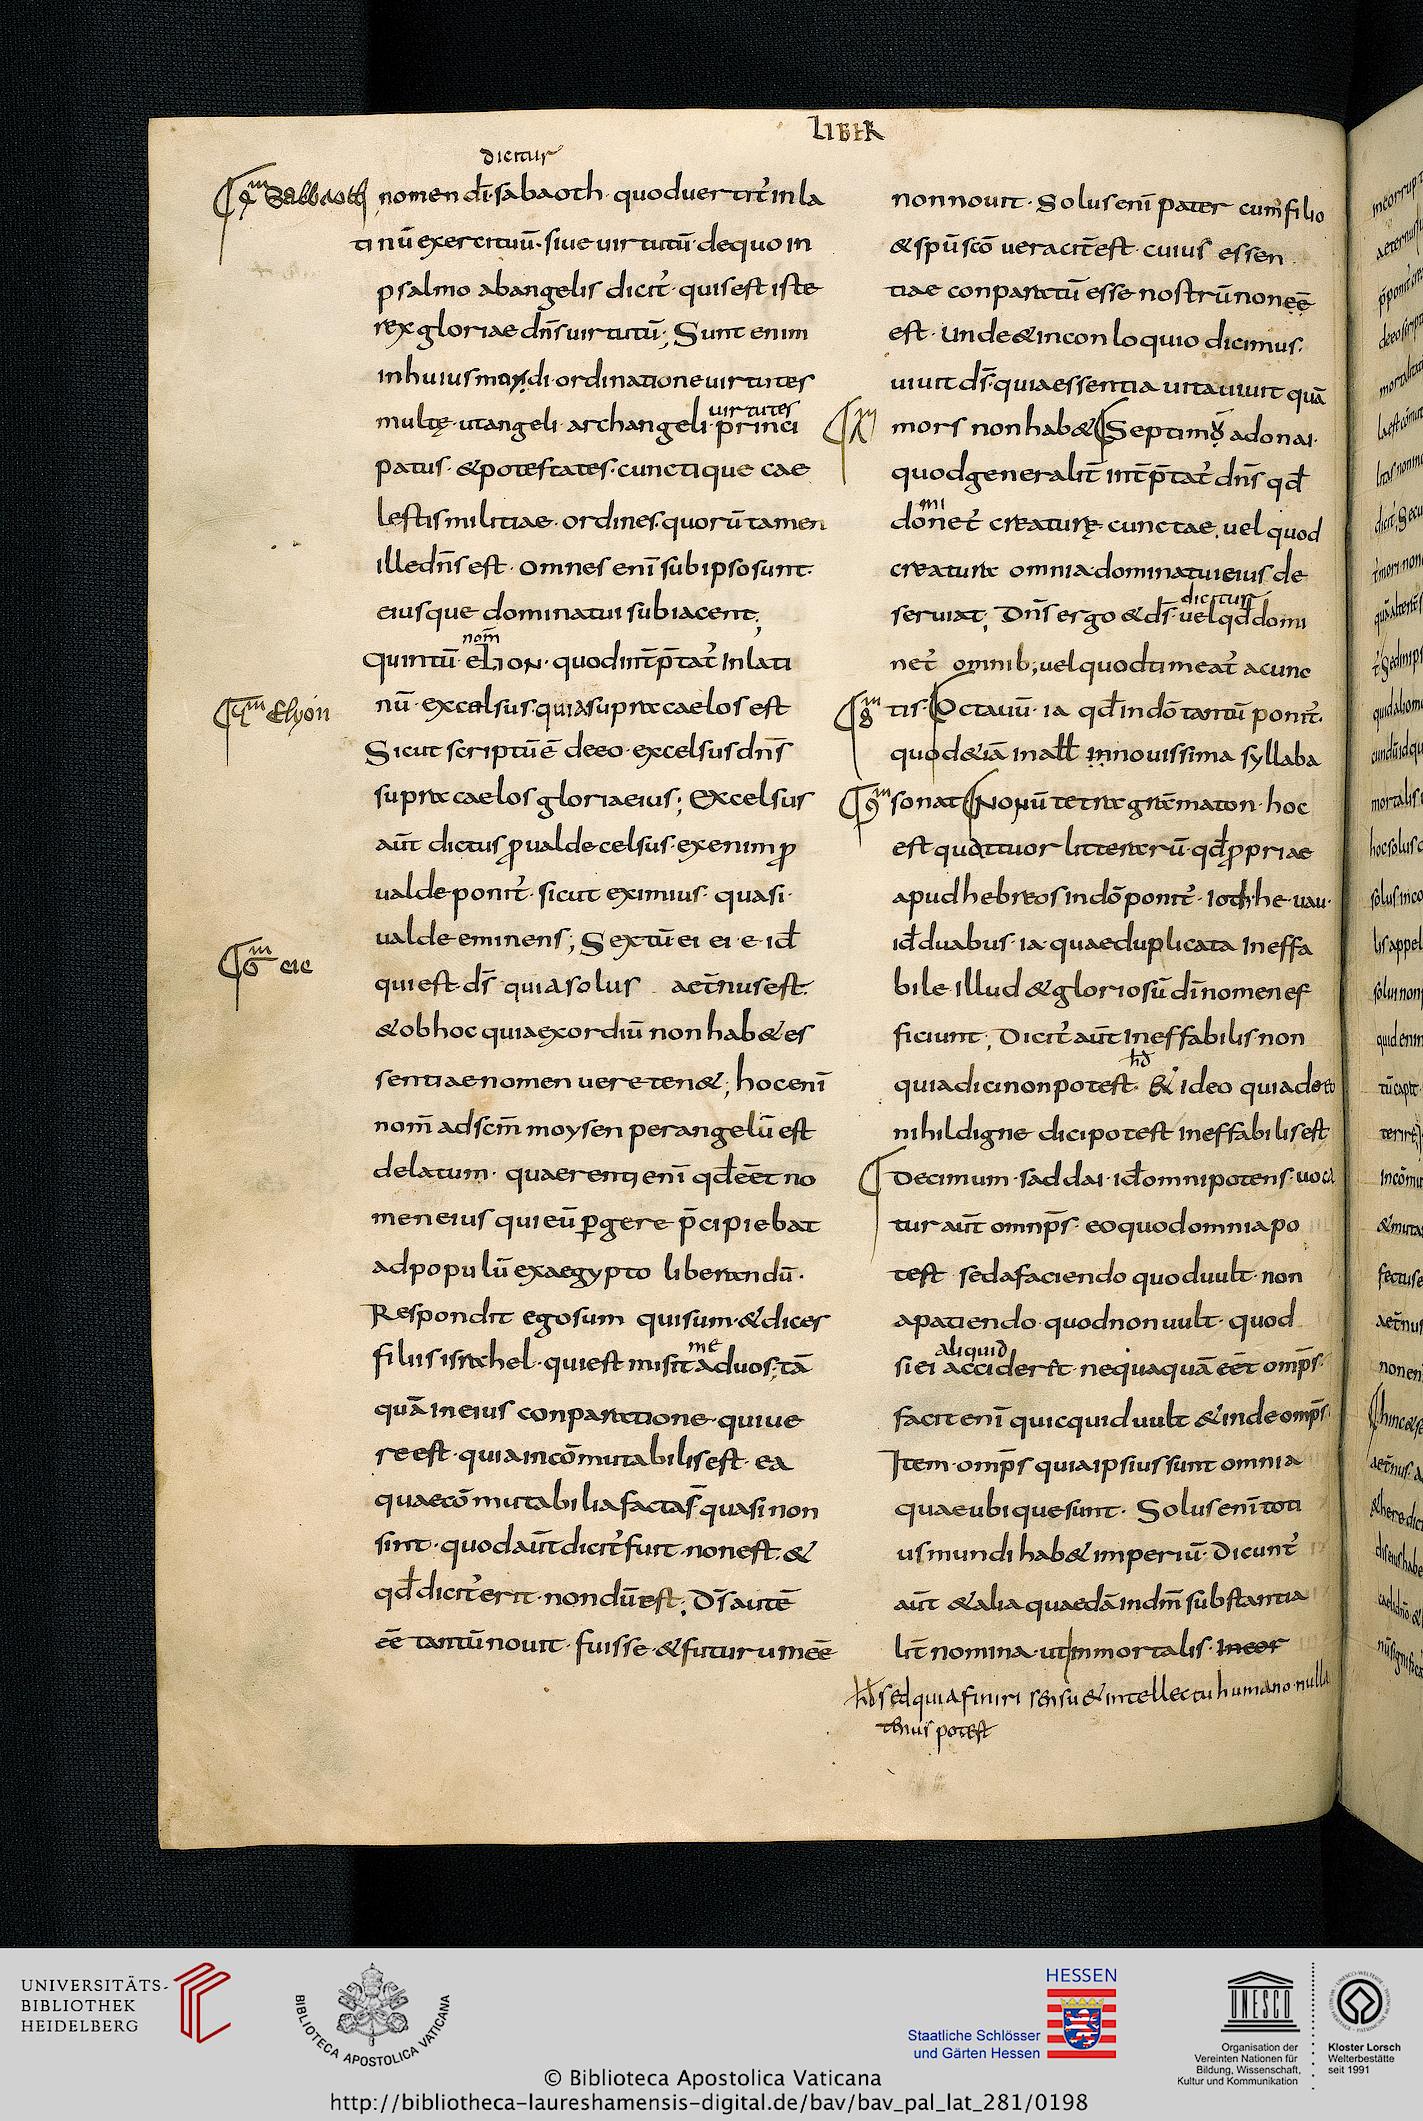 LIBER
dictur
Sabbaoth nomen dī sabaoth · quod uertit᾽ in la
ti nū exercituū · siue uirtutū · de quo in
psalmo ab angelis dicit᾽ · quis est iste
rex gloriae dn̄s uirtutū ; Sunt enim
in huius mundi · ordinatione uirtutes
uirtutes
multę · ut angeli · archangeli · princi
patus · & potestates · cunctique cae
lestis militiae · ordines · quorū tamen
ille dn̄s est · omnes enī sub ipso sunt ·
eiusque dominatui subiacent ;
nom̄
quintū · eLION · quod int̄p̄tat᾽ In lati
Elyon nū · excelsus · quia supra caelos est
Sicut scriptū ē de eo · excelsus dn̄s
supra caelos gloria eius ; Excelsus
aūt dictus ꝓ ualde celsus · ex enim ꝓ
ualde ponit᾽ · sicut eximius · quasi ·
ualde eminens ; Sextū ei ei · e · id̄
eie qui est · ds̄ quia solus aet̄nus est ·
& ob hoc quia exordiū non hab& es
sentiae nomen uere ten& ; hoc enī
nom̄ ad scm̄ moysen per angelū est
delatum · quaerenti enī qd̄ eēt no
men eius qui eū ꝑgere p̄cipiebat
ad populū ex aegypto liberandū ·
Respondit ego sum qui sum · & dices
me
filiis israhel · qui est misit ad uos ; tā
quā in eius conparatione · qui ue
re est · quia incōmutabilis est · ea
quae cōmutabilia facta s̄ quasi non
sint · quod aūt dicit᾽ fuit · non est · &
qd̄ dicit᾽ erit · nondū est ; Ds̄ autē
eē tantū nouit · fuisse · & futurum eē
non nouit · Solus enī pater cum filio
& spū scō ueracit̄ est · cuius essen
tiae conparatū esse nostrū non eē
est · Unde & in conloquio dicimus ·
uiuit ds̄ · quia essentia uita uiuit quā
mors non hab& Septimū adonai ·
quod generalit̄ int̄p̄tat᾽ dn̄s qd̄
mi
donet᾽ creaturę cunctae · uel quod
creatura omnia dominatui eius de
dicitur
seruiat ; Dn̄s ergo & ds̄ · uel qd̄ domi
net᾽ omnib; uel quod timeat᾽ a cunc
tis · Octauū · ia qd̄ in dō tantū ponit᾽ ·
quod & iā in all̄ in nouissima syllaba
sonat Nonū tetragrāmaton · hoc
est quattuor litterarū · qd̄ ꝓpriae
apud hebreos in dō ponit᾽ · ioth · he · uau ·
id̄ duabus · ia · quae duplicata Ineffa
bile illud & gloriosū dī nomen ef
ficiunt ; Dicit᾽ aūt Ineffabilis · non
hd̄
quia dici non potest · & ideo quia de eo
nihil digne dici potest ineffabilis est
Decimum · saddai · id̄ omnipotens · uoca
tur aūt omnp̄s · eo quod omnia po
test sed a faciendo quod uult · non
a patiendo · quod non uult · quod
aliquid
si ei acciderit · nequaquā eēt omp̄s ·
facit enī quicquid uult & inde omp̄s ·
Item · omp̄s quia ipsius sunt omnia
quae ubique sunt · Solus enī toti
us mundi hab& imperiū · Dicunt᾽
aūt & alia quaedā in dm̄ substantia
lit̄ nomina · ut inmortalis · Incor
hd̄ sed quia finiri sensu & intellectu humano · nulla
tenus potest
UNIVERSITÄTS-
BIBLIOTHEK
HEIDELBERG
BIBLIOTECA APOSTOLICA VATICANA
HESSEN
Staatliche Schlösser
und Gärten Hessen
UNESCO
Organisation der
Vereinten Nationen für
Bildung, Wissenschaft,
Kultur und Kommunikation
Kloster Lorsch
Welterbestätte
seit 1991
© Biblioteca Apostolica Vaticana
http://bibliotheca-laureshamensis-digital.de/bav/bav_pal_lat_281/0198